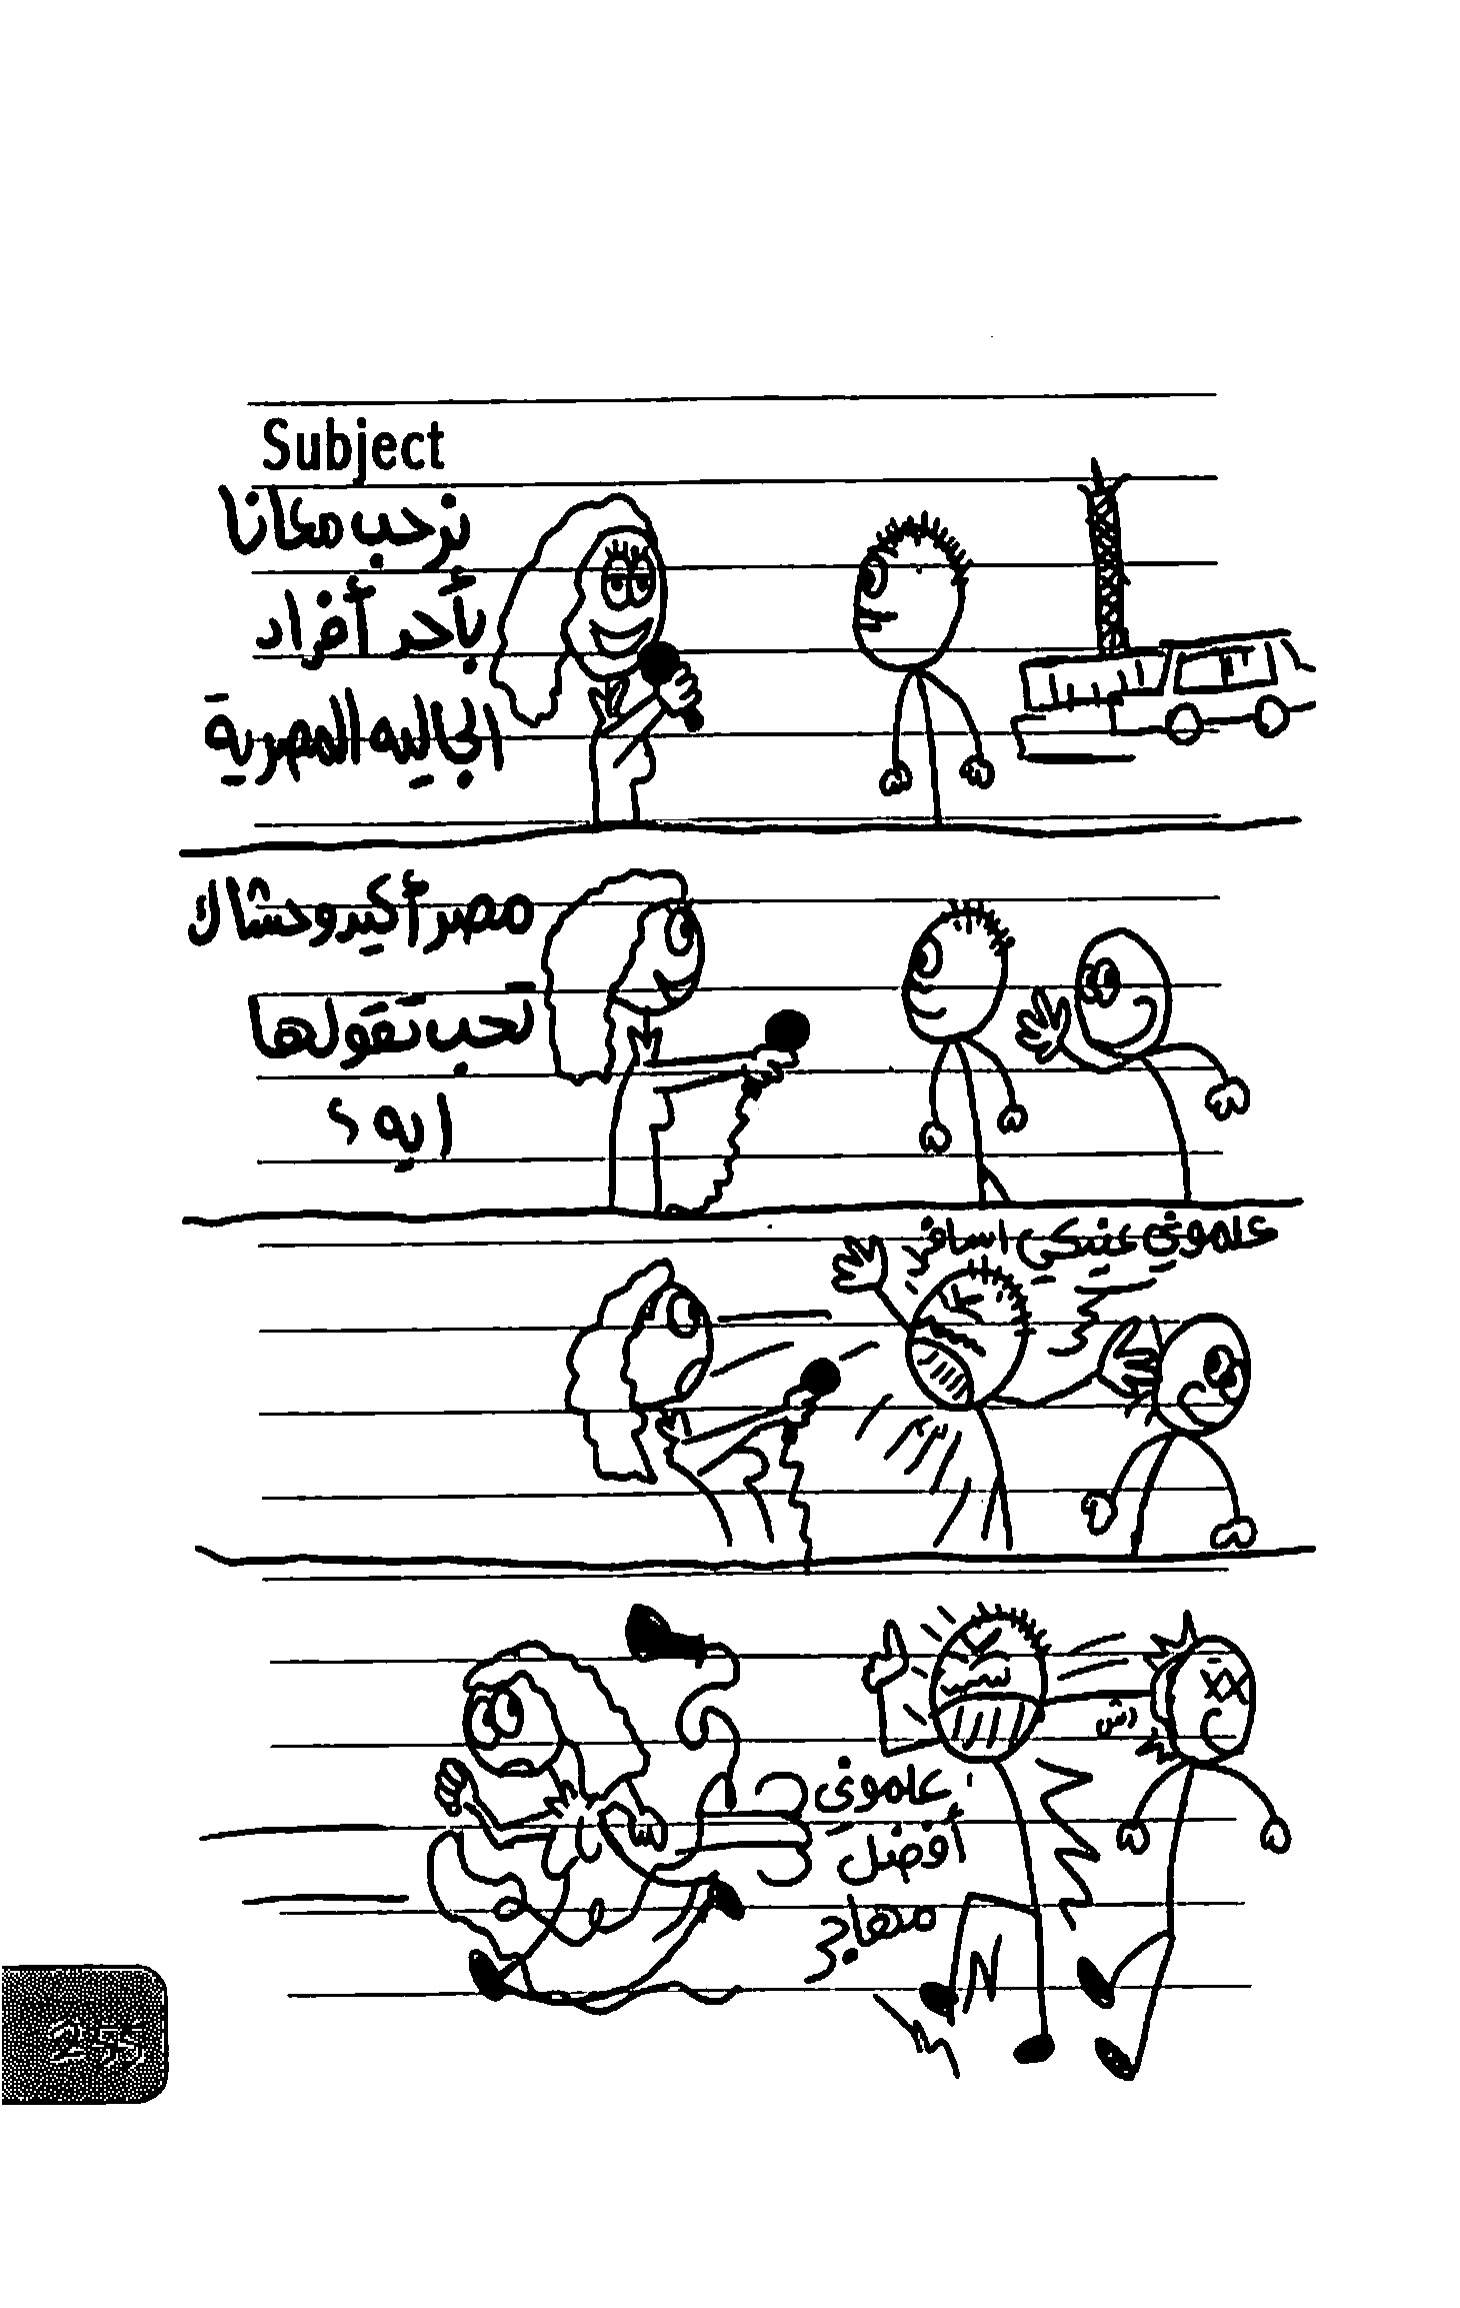 Subject
نرحب معانا
بأحد أفراد
الجاليه المصرية
مصر أكيد وحشاك
تحب تقولها
ايه؟
علموني عنيكي اسافر
دش
علموني
أفضل
مهاجر
255